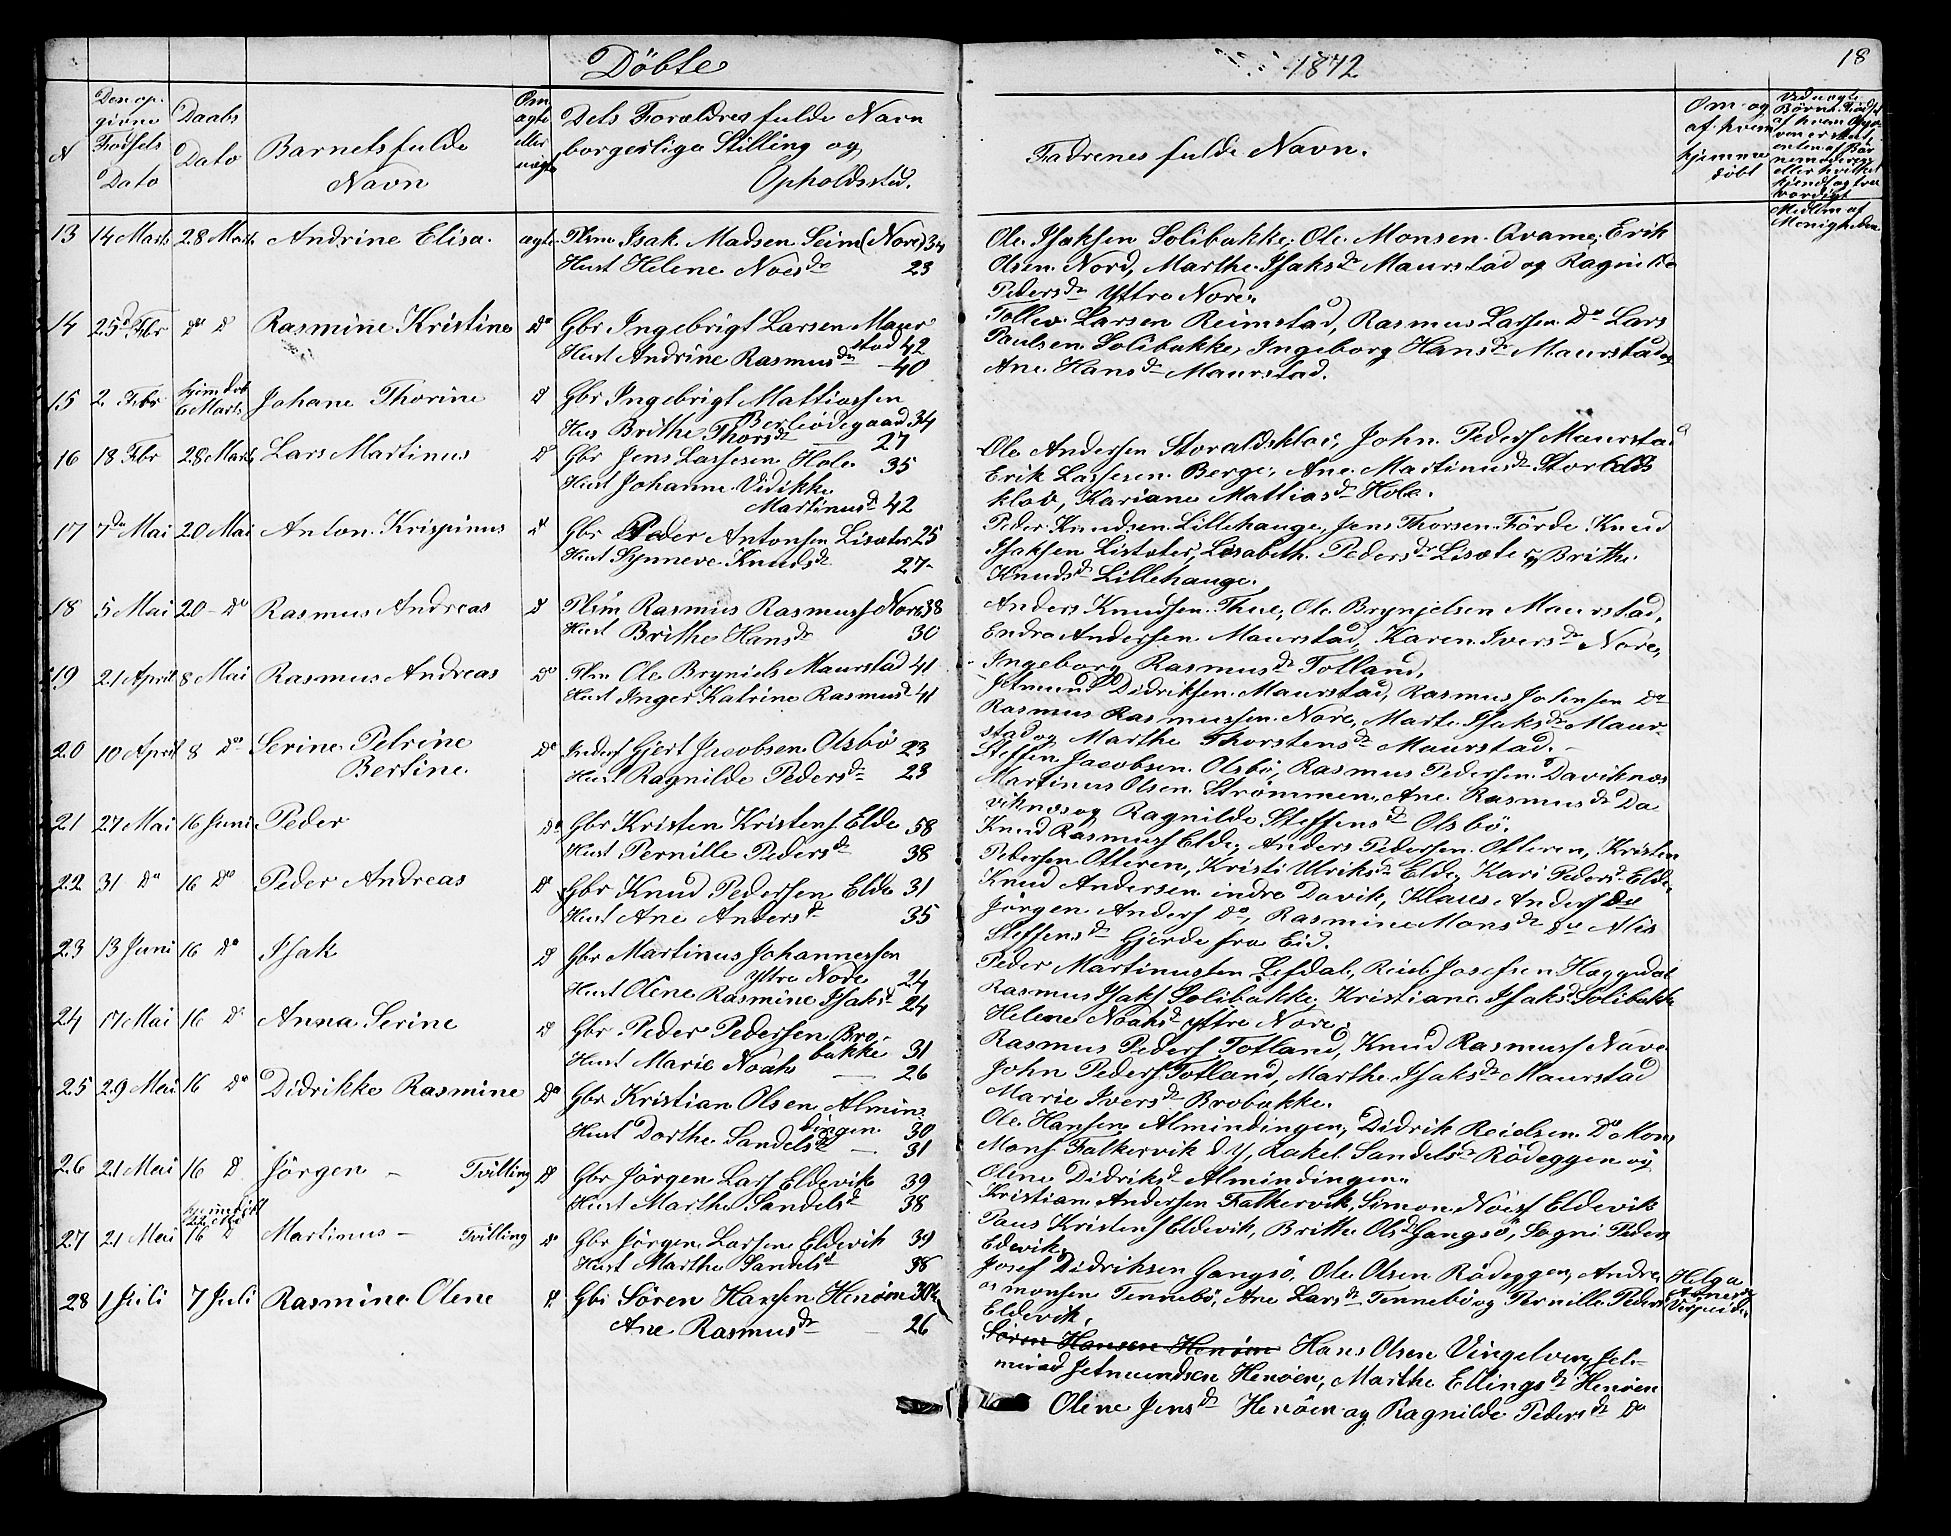 Döbte 1872 18
N
Den op-
givne
Fødsels
Dato
Daabs
Dato
Barnets fulde
Navn
Om
ægte
eller
uægte
Dets Forældres fulde Navn
borgerlige Stilling og
Opholdssted.
Fadrenes fulde Navn.
Om og
af hvem
hjemme
döbt
13 14 Marts 28 Marts Andrine Elisa. ægte Plsm Isak Madsen Seim (Nore) 34
Hust Helene Noesdr 23
Ole Isaksen Solibakke, Ole Monsen Qvame, Erik
Olsen Nord, Marthe Isaksdr Maurstad og Ragnilda
Pedersdr Yttre Nore.
14 25d Febr do d Rasmine Kristine do Gbr Ingebrigt Larsen Maur-
stad 42
Hust Andrine Rasmusdr 40
Tollev Larsen Reimstad, Rasmus Larsen do Lars
Paulsen Solibakke, Ingeborg Hansdr Maurstad og
Ane Hansdr Maurstad.
15 2 Febr hjemdöb
6 Marts Johane Thorine d Gbr Ingebrigt Mattiassen
Berleödegaard 34
Hus Brithe Thorsdr 27
16 18 Febr 28 Marts Lars Martinus d Gbr Jens Lassesen Hole 35
Hust Johanne Didikke
Martinusd 42
Ole Andersen Storaldsklov, John Peders Maurstad
Erik Lassesen Berge, Ane Martinusdr Storalds
klov, Kariane Mattiasdr Hole.
17 7de Mai 20 Mai Anton Krispinus d Gbr Peder Antonsen Lisæter 25
Hust Synneve Knudsdr 27
Peder Knudsen Lillehauge, Jens Thorsen Förde Knud
Isaksen Lisæter, Lisabeth Pedersdr Lisæter og Brithe
Knudsdr Lillehauge.
18 5 Mai 20 - do Rasmus Andreas d Plsm Rasmus Rasmuss Nore 38
Hust Brithe Hansdr 30
Anders Knudsen Thue, Ole Brynjelsen Maurstad,
Endre Andersen Maurstad, Karen Iversdr Nore,
Ingeborg Rasmusdr Totland.
19 21 April 8 Mai Rasmus Andreas do Plsm Ole Bryniels Maurstad 41
Hust Inger Katrine Rasmusd 41
Jetmund Didriksen Maurstad, Rasmus Johnsen do
Rasmus Rasmussen Nore, Marte Isaksdr Maur-
stad og Marthe Thorstensdr Maurstad.
20 10 April 8 do Serine Petrine
Bertine. do Inders Gjert Jacobsen Olsbö 23
Hust Ragnilde Pedersdr 23
Steffen Jacobsen Olsbö, Rasmus Pedersen Daviknæs
Martinus Olsen Strömmen, Ane Rasmusdr Da
viknæs og Ragnilde Steffensdr Olsbö.
21 27 Mai 16 Juni Peder do Gbr Kristen Kristens Elde 58
Hust Pernille Pedersdr 38
Knud Rasmuss Elde, Anders Pedersen Otteren, Kristen
Pedersen Otteren, Kristi Ulriksdr Elde, Kari Pedersd Elde,
22 31 do 16 do Peder Andreas do Gbr Knud Pedersen Elde 31
Hust Ane Andersdr 35
Knud Andersen indre Davik, Klaus Anders do
Jörgen Anders do, Rasmine Monsdr do Alis
Steffensdr Gjerde fra Eid.
23 13 Juni 16 do Isak d Gbr Martinus Johannessen
Yttre Nore 24
Hust Olene Rasmine Isaksd 24
Peder Martinussen Lefdal, Reiel Josefsen Hæggedal
Rasmus Isaks Solibakke, Kristiane Isaksd Solibakke
Helene Noahsd Yttre Nore.
24 17 Mai 16 d Anna Serine d Gbr Peder Pedersen Bro-
bakke 31
Hust Marie Noahs 26
Rasmus Peders Totland, Knud Rasmuss Nave
John Peders Totland, Marthe Isaksdr Maurstad
Marie Iversdr Brobakke.
25 29 Mai 16 do Didrikke Rasmine do Gbr Kristian Olsen Almin-
dingen 30
Hust Dorthe Sandelsdr 31
Ole Hansen Almindingen, Didrik Reielsen do Mons
Mons Falkervik d y, Rakel Sandelsdr Rödeggen og
Olene Didriksd Almindingen.
26 21 Mai 16 d Jörgen - Tvilling do Gbr Jörgen Lars Eldevik 39
Hust Marthe Sandelsd 38
Kristian Andersen Falkervik, Simon Noess Eldevik
Paus Kristens Eldevik, Brithe Olsd Gangsö, Sogni Peders
Eldevik.
27 21 Mai hjemedöbt
22 Mai
16 d Martinus - Tvilling do Gbr Jörgen Larsen Eldevik 39
Hust Marthe Sandelsd 38
Josef Didriksen Gangsö, Ole Olsen Rödeggen, Andre
as Monsen Tennebö, Ane Larsdr Tennebö og Pernille Pedersd
Eldevik.
Helga
28 1 Juli 7 Juli Rasmine Olene d Gbr Sören Hansen Henöen 30
Ane Rasmusdr 26
Sören Hansen Henöen Hans Olsen Vingelven, Jet-
mund Jetmundsen Henöen, Marthe Ellingsdr Henöen
Olene Jensdr Henöen og Ragnilde Pedersdr do